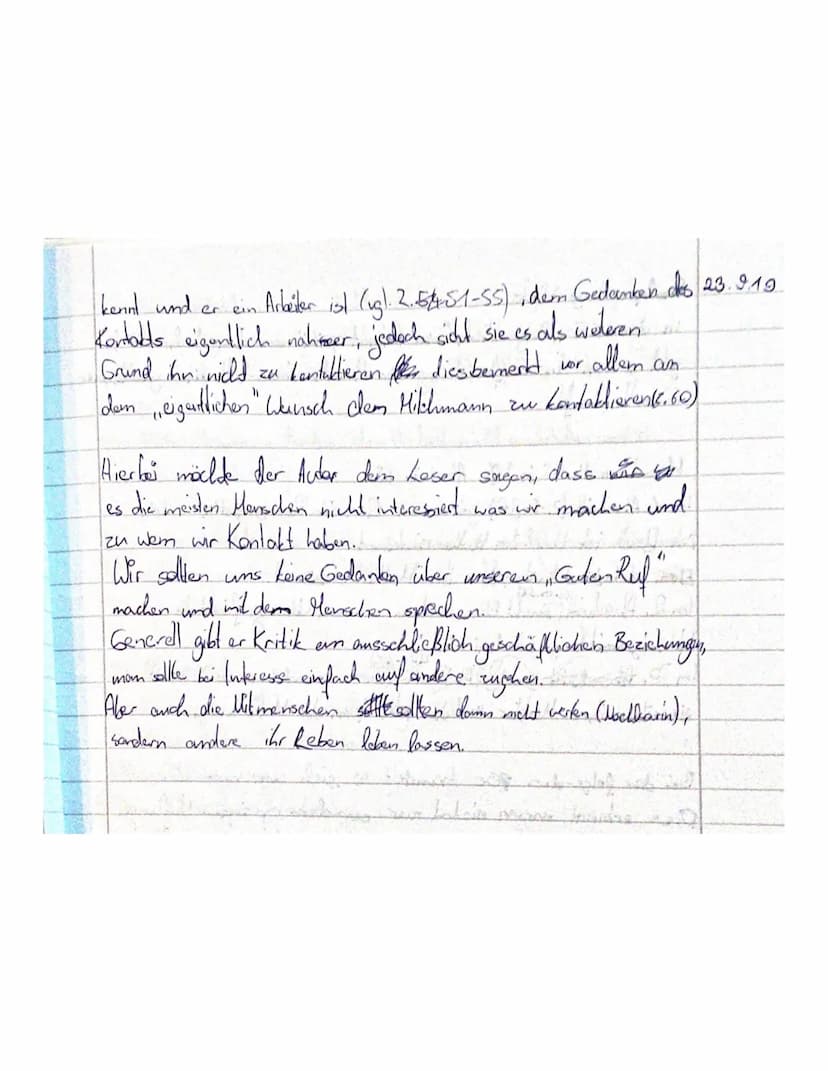 kennt und er ein Arbeiter ist (vgl. Z. 51-55), dem Gedanken des 23.9.19
Kontakts eigentlich nahmeer, jedoch sieht sie es als weteren
Grund ihn nicht zu kontaktieren dies bemerkt vor allem an
dem „eigentlichen" Wunsch dem Milchmann zu kontaktieren (Z. 60)
Hierbei möchte der Autor dem Leser sagen, dass
es die meisten Menschen nicht interessiert was wir machen und
zu wem wir Kontakt haben.
Wir sollten uns keine Gedanken über unseren „Guten Ruf"
machen und mit dem Menschen sprechen.
Generell gibt er Kritik an ausschließlich geschäftlichen Beziehungen,
man sollte bei Interesse einfach auf andere zugehen.
Aber auch die Mitmenschen sollten dann nicht werten
sondern andere ihr Leben leben lassen.